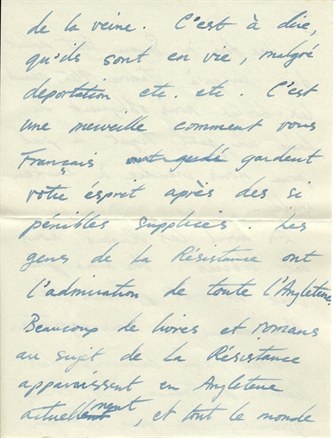 de la veine. C'est à dire,
qu'ils sont en vie, malgré
deportation etc. etc. C'est
une merveille comment vous
Français ont gardé gardent
votre ésprit après des si
pénibles supplices. Les
gens de la Résistance ont
l'admiration de toute l'Angleterre.
Beaucoup de livres et romans
au sujet de la Résistance
apparaissent en Angleterre
actuellement, et tout le monde